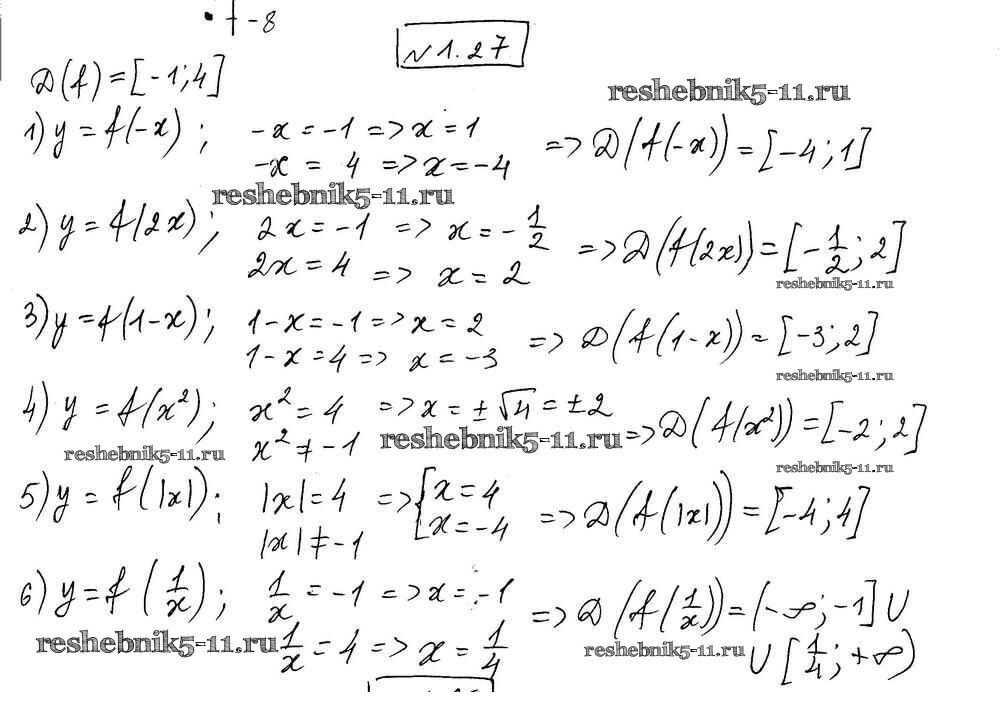 -8
№ 1.27
D(f)=[-1;4]
reshebnik5-11.ru
1) y=f(-x); -x=-1 => x=1
-x = 4 => x=-4 => D(f(-x))=[-4;1]
reshebnik5-11.ru
2) y=f(2x); 2x=-1 => x=-1/2
2x=4 => x=2 => D(f(2x))=[-1/2;2]
reshebnik5-11.ru
3) y=f(1-x); 1-x=-1 => x=2
1-x=4 => x=-3 => D(f(1-x))=[-3;2]
reshebnik5-11.ru
4) y=f(x²); x²=4 => x=±√4=±2
x²≠-1 => D(f(x²))=[-2;2]
reshebnik5-11.ru
reshebnik5-11.ru
reshebnik5-11.ru
5) y=f(|x|); |x|=4 => [x=4
|x|≠-1 [x=-4 => D(f(|x|))=[-4;4]
6) y=f(1/x); 1/x=-1 => x=-1 => D(f(1/x))=(-∞;-1]∪
1/x=4 => x=1/4 ∪[1/4;+∞)
reshebnik5-11.ru
reshebnik5-11.ru